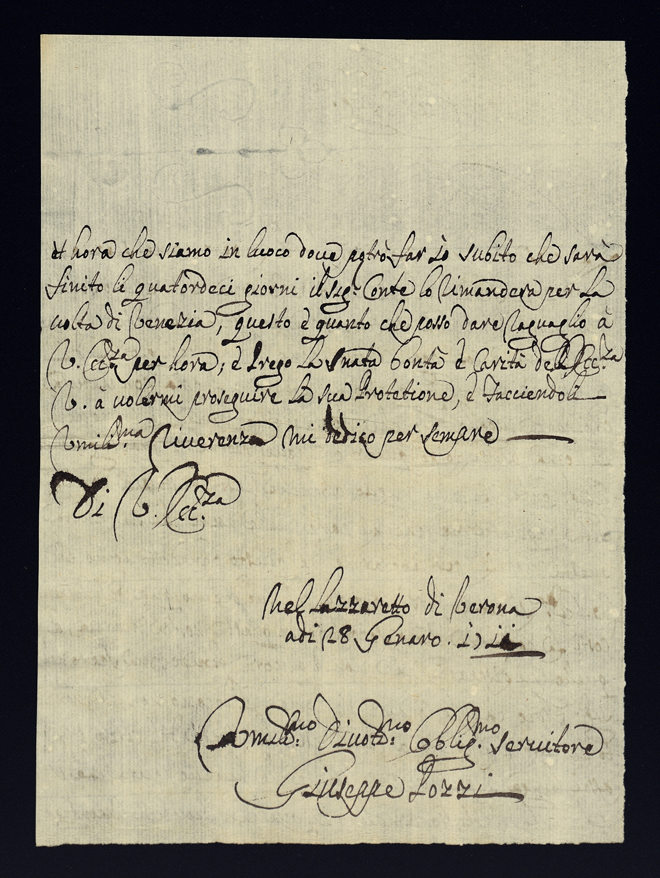 et hora che siamo in luoco doue potrò far io subito che sarà
finito li quatordeci giorni il sig.r Conte lo rimanderà per la
uolta di Venezia, questo è quanto che posso dare raguaglio à
V. Ecc.za per hora, è prego la nata bontà è Carità dell Ecc.za
V. à uolermi proseguire la sua Protetione, è facciendoli
Vmilis.ma riuerenza mi dedico per sempre
Di V. Ecc.za
Nel Lazzaretto di Verona
adi 28 Genaro.
Vmilis.mo Diuotis.mo Oblig.mo seruitore
Giuseppe Pozzi